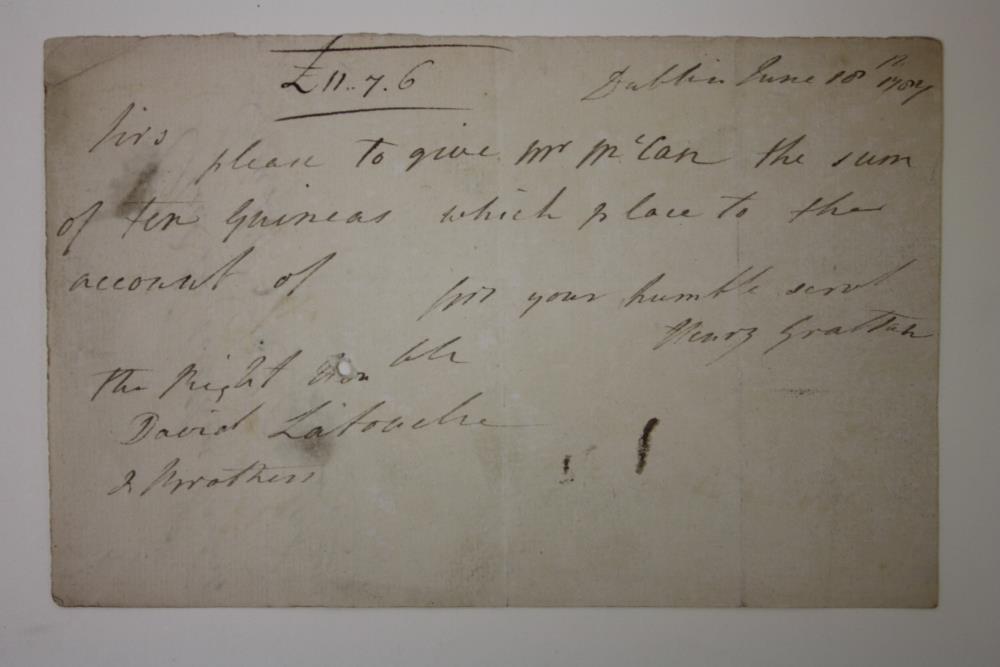 £11..7.6
Dublin June 18th 1787
Sirs
please to give Mr McCan the sum
of ten Guineas which place to the
account of
Sirs your humble servt
Henry Grattan
The Right Honble
David Latouche
& Brothers